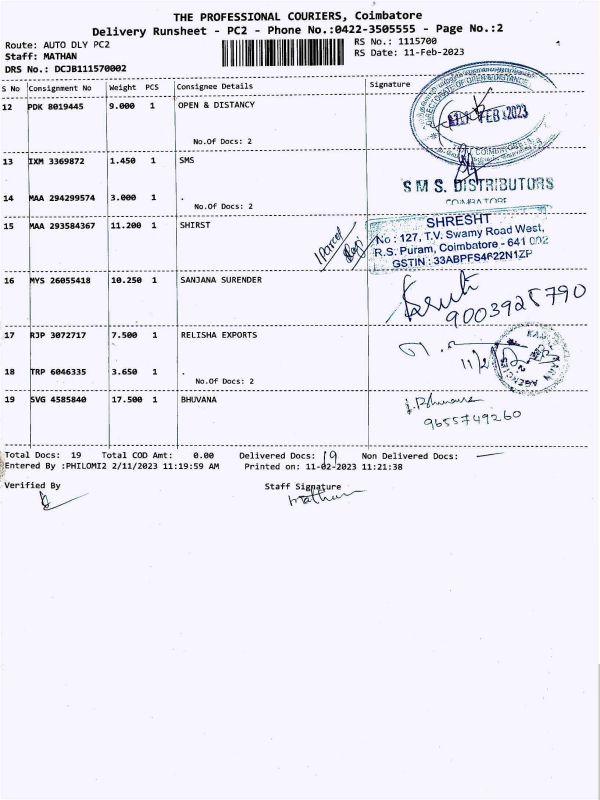 THE PROFESSIONAL COURIERS, Coimbatore
Delivery Runsheet - PC2 - Phone No.:0422-3505555 - Page No.:2
Route: AUTO DLY PC2 RS No.: 1115700
Staff: MATHAN RS Date: 11-Feb-2023
DRS No.: DCJB111570002
S No Consignment No Weight PCS Consignee Details Signature
12 PDK 8019445 9.000 1 OPEN & DISTANCY
DIRECTORATE OF OPEN & DISTANCE
FEB 2023
COIMBATORE
No.Of Docs: 2
13 IXM 3369872 1.450 1 SMS
S M S. DISTRIBUTORS
COIMBATORE
14 MAA 294299574 3.000 1 .
No.Of Docs: 2
15 MAA 293584367 11.200 1 SHIRST
1 Parcel
SHRESHT
No : 127, T.V. Swamy Road West,
R.S. Puram, Coimbatore - 641 002
GSTIN : 33ABPFS4622N1ZP
16 MYS 26055418 10.250 1 SANJANA SURENDER
9003925790
17 RJP 3072717 7.500 1 RELISHA EXPORTS
11/2
18 TRP 6046335 3.650 1 .
No.Of Docs: 2
19 SVG 4585840 17.500 1 BHUVANA
J. Bhuvana
9655749260
Total Docs: 19 Total COD Amt: 0.00 Delivered Docs: 19 Non Delivered Docs: —
Entered By :PHILOMI2 2/11/2023 11:19:59 AM Printed on: 11-02-2023 11:21:38
Verified By Staff Signature
mathan